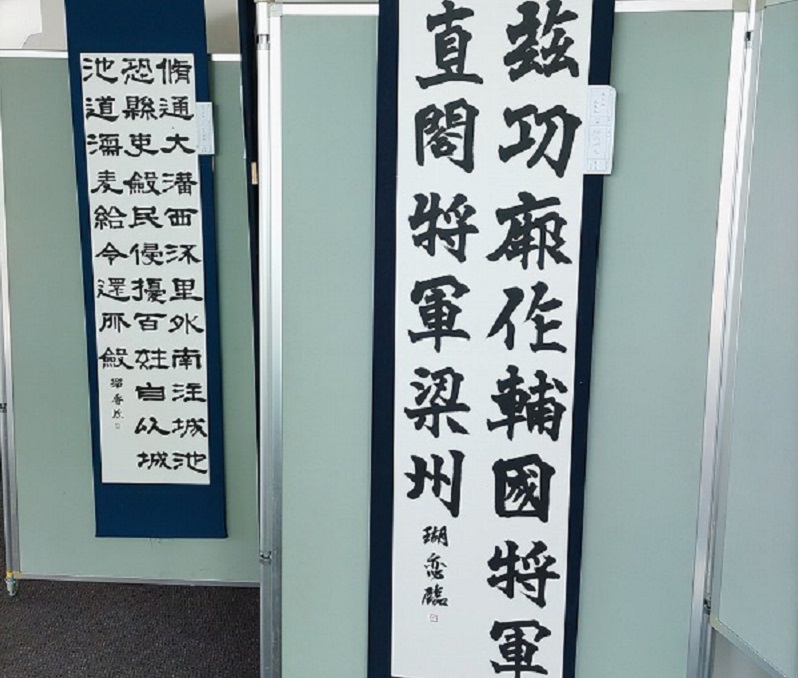 茲功厥作輔國將軍
直閤將軍梁州
瑚恋臨
脩通大溝西流里外南注城池
恐縣吏斂民侵擾百姓自以城
池道濡麦給令還所斂